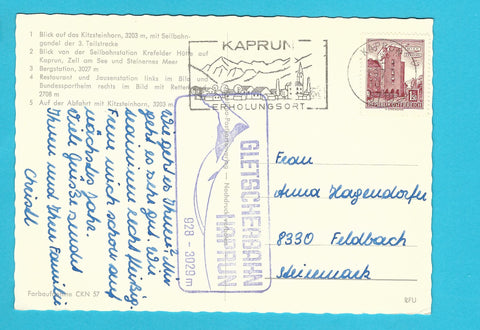 1 Blick auf das Kitzsteinhorn, 3203 m, mit Seilbahn-
gondel der 3. Teilstrecke
2 Blick von der Seilbahnstation Krefelder Hütte auf
Kaprun, Zell am See und Steinernes Meer
3 Bergstation, 3027 m
4 Restaurant und Jausenstation links im Bild und
Bundessportheim rechts im Bild mit Retten
2708 m
5 Auf der Abfahrt mit Kitzsteinhorn, 3203 m
KAPRUN
ERHOLUNGSORT
REPUBLIK ÖSTERREICH
GLETSCHERBAHN
KAPRUN
928 - 3029 m
Wie geht es Ihnen? Mir
geht es sehr gut. Wir
trainieren recht fleißig.
Freue mich schon auf
nächstes Jahr.
Viele Grüße sendet
Ihnen und Ihrer Familie
Christl
Frau
Anna Hagendorfer
8330 Feldbach
Steiermark
Farbaufnahme CKN 57
RFU